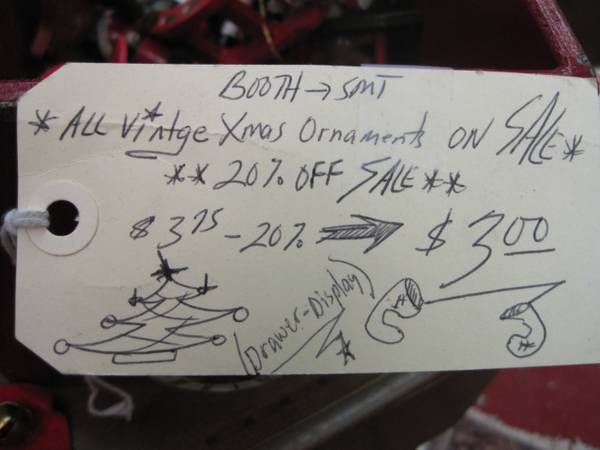 BOOTH → SMT
* ALL Vintge Xmas Ornaments ON SALE *
** 20% OFF SALE **
$3.75 - 20% → $3.00
(Drawer-Display)